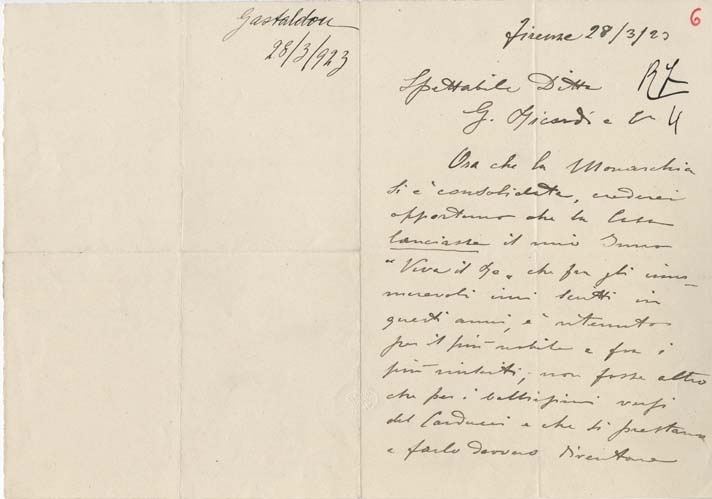 Gastaldon
28/3/923
6
Firenze 28/3/23
Spettabile Ditta
G. Ricordi e Cⁱ
Ora che la Monarchia
si è consolidata, crederei
opportuno che la Casa
lanciasse il mio Inno
"Viva il Re" che fra gli innu-
merevoli inni scritti in
questi anni, è ritenuto
per il più nobile e fra i
più riusciti; non fosse altro
che per i bellissimi versi
del Carducci e che si prestano
a farlo davvero diventare